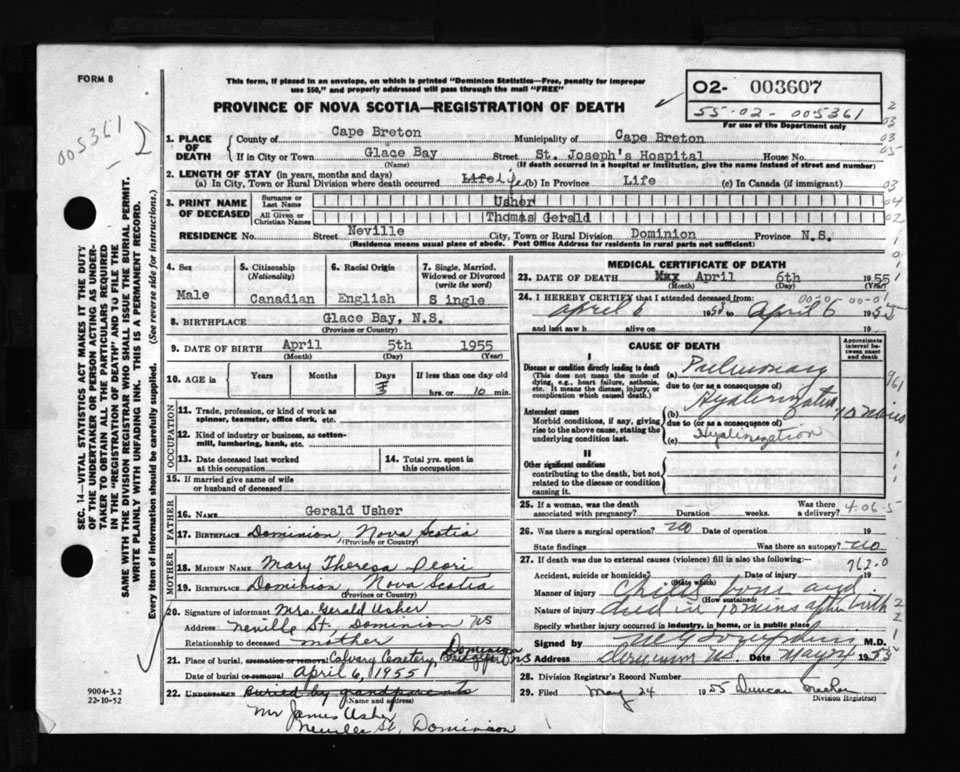 FORM 8
This form, if placed in an envelope, on which is printed "Dominion Statistics—Free, penalty for improper
use $50," and properly addressed will pass through the mail "FREE"
PROVINCE OF NOVA SCOTIA—REGISTRATION OF DEATH
02- 003607
55-02-005361
For use of the Department only
005361
SEC. 14—VITAL STATISTICS ACT MAKES IT THE DUTY
OF THE UNDERTAKER OR PERSON ACTING AS UNDER-
TAKER TO OBTAIN ALL THE PARTICULARS REQUIRED
IN THE "REGISTRATION OF DEATH" AND TO FILE THE
SAME WITH THE DIVISION REGISTRAR WHO SHALL ISSUE THE BURIAL PERMIT.
WRITE PLAINLY WITH UNFADING INK. THIS IS A PERMANENT RECORD.
Every item of information should be carefully supplied. (See reverse side for instructions.)
1. PLACE OF DEATH
County of Cape Breton Municipality of Cape Breton
If in City or Town Glace Bay Street St. Joseph's Hospital House No.
(Name) (If death occurred in a hospital or institution, give the name instead of street and number)
2. LENGTH OF STAY (in years, months and days)
(a) In City, Town or Rural Division where death occurred Life Life (b) In Province Life (c) In Canada (if immigrant)
3. PRINT NAME OF DECEASED
Surname or Last Name Usher
All Given or Christian Names Thomas Gerald
RESIDENCE No. Street Neville City, Town or Rural Division Dominion Province N.S.
(Residence means usual place of abode. Post Office Address for residents in rural parts not sufficient)
4. Sex Male
5. Citizenship (Nationality) Canadian
6. Racial Origin English
7. Single, Married, Widowed or Divorced (write the word) S ingle
8. BIRTHPLACE Glace Bay, N.S.
(Province or Country)
9. DATE OF BIRTH April 5th 1955
(Month) (Day) (Year)
10. AGE in Years Months Days If less than one day old
hrs. or 10 min.
OCCUPATION
11. Trade, profession, or kind of work as
spinner, teamster, office clerk, etc.
12. Kind of industry or business, as cotton-
mill, lumbering, bank, etc.
13. Date deceased last worked
at this occupation
14. Total yrs. spent in
this occupation
15. If married give name of wife
or husband of deceased
FATHER
16. NAME Gerald Usher
17. BIRTHPLACE Dominion, Nova Scotia
(Province or Country)
MOTHER
18. MAIDEN NAME Mary Theresa
19. BIRTHPLACE Dominion, Nova Scotia
(Province or Country)
20. Signature of informant Mrs. Gerald Usher
Address Neville St, Dominion NS
Relationship to deceased mother
21. Place of burial, cremation or removal Calvary Cemetery, Dominion NS
Date of burial or removal April 6, 1955
22. Undertaker Buried by grandparents
(Name and address)
Mr James Usher
Neville St, Dominion
9004-3.2
22-10-52
MEDICAL CERTIFICATE OF DEATH
23. DATE OF DEATH April 6th 1955
(Month) (Day) (Year)
24. I HEREBY CERTIFY that I attended deceased from:
April 6 1955 to April 6 1955
and last saw h alive on 19
CAUSE OF DEATH
Approximate interval between onset and death
I
Disease or condition directly leading to death
(This does not mean the mode of
dying, e.g., heart failure, asthenia,
etc. It means the disease, injury, or
complication which caused death.)
(a) Pulmonary
due to (or as a consequence of)
Hyalinization
Antecedent causes
Morbid conditions, if any, giving
rise to the above cause, stating the
underlying condition last.
(b) 10 mins
due to (or as a consequence of)
(c) Hyalinization
II
Other significant conditions
contributing to the death, but not
related to the disease or condition
causing it.
25. If a woman, was the death
associated with pregnancy? Duration weeks. Was there a delivery?
26. Was there a surgical operation? no Date of operation 19
State findings Was there an autopsy? no
27. If death was due to external causes (violence) fill in also the following:
762.0
Accident, suicide or homicide? Date of injury 19
(State which)
Manner of injury Child born and
(How sustained)
Nature of injury died in 10 mins after birth
Specify whether injury occurred in industry, in home, or in public place
Signed by M.D.
Address Dominion NS. Date May 1955
28. Division Registrar's Record Number
29. Filed May 24 1955 Duncan
(Division Registrar)